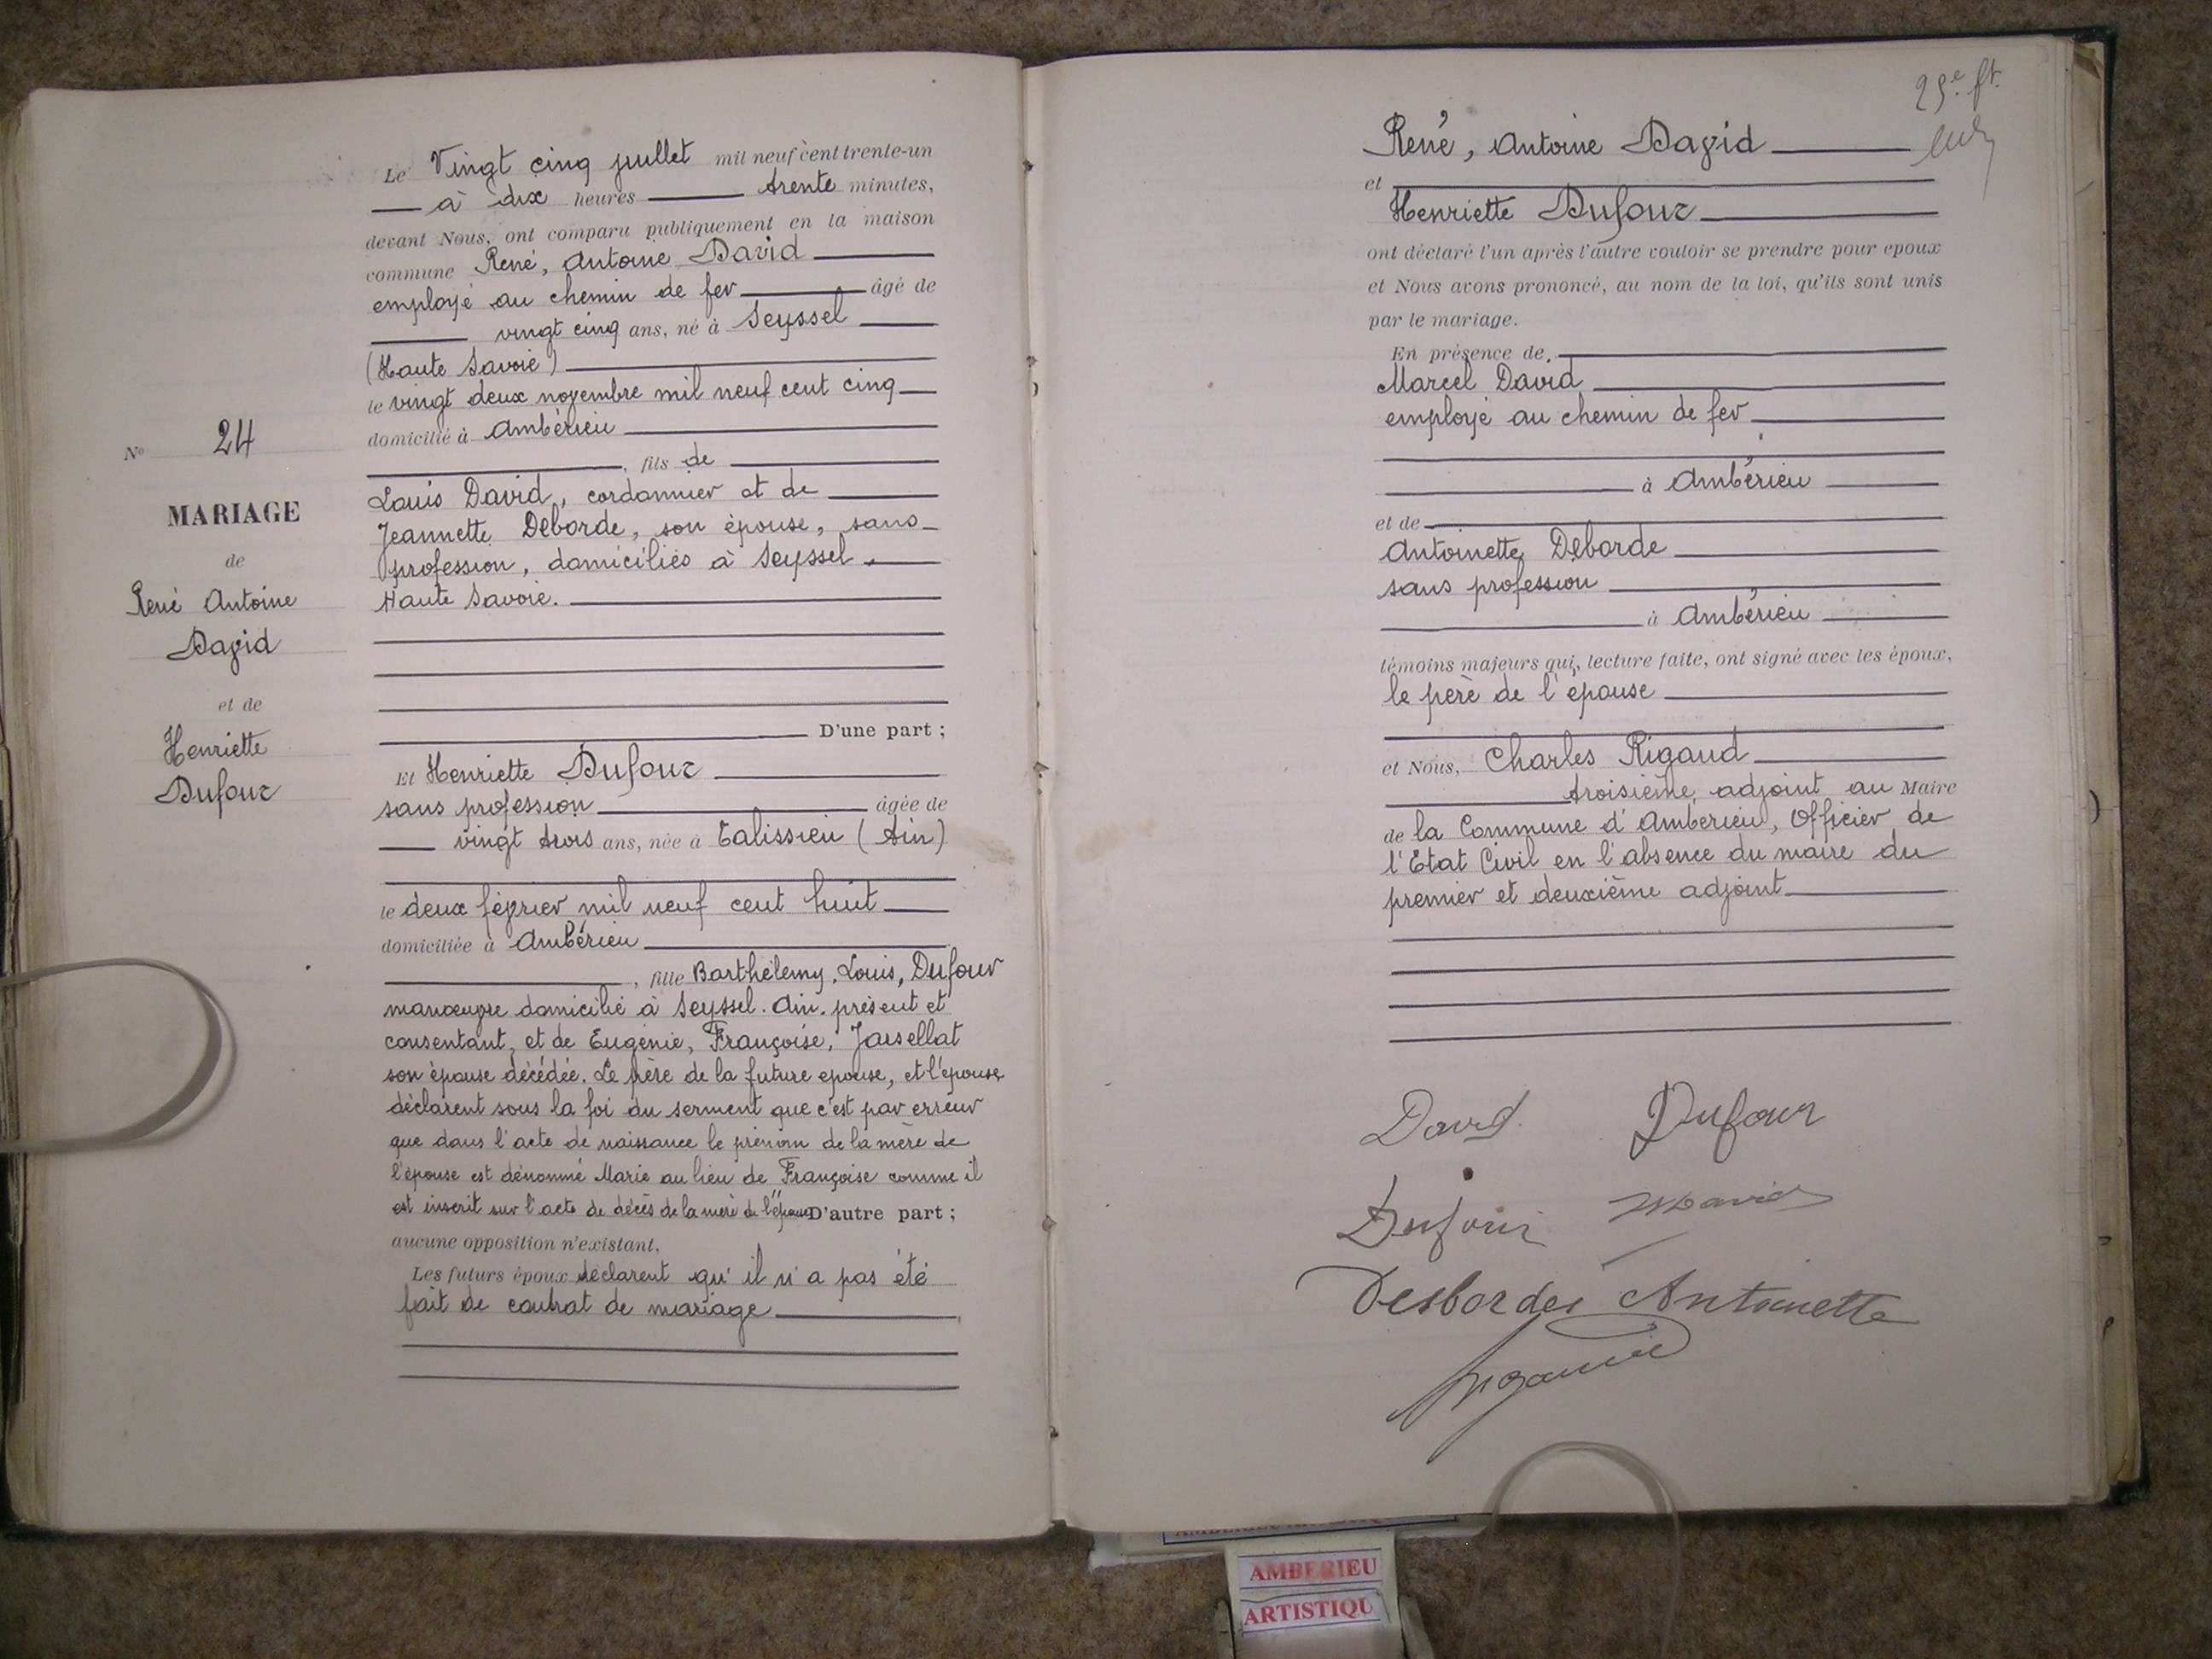 Le Vingt cinq juillet mil neuf cent trente-un
à dix heures trente minutes,
devant Nous, ont comparu publiquement en la maison
commune René, Antoine David
employé au chemin de fer âgé de
vingt cinq ans, né à Seyssel
(Haute Savoie)
le vingt deux novembre mil neuf cent cinq
domicilié à Ambérieu
, fils de
Louis David, cordonnier et de
Jeannette Deborde, son épouse, sans
profession, domiciliés à Seyssel.
Haute Savoie.
D'une part ;
Et Henriette Dufour
sans profession âgée de
vingt trois ans, née à Talissieu (Ain)
le deux février mil neuf cent huit
domiciliée à Ambérieu
, fille Barthélemy, Louis, Dufour
manœuvre domicilié à Seyssel. Ain. présent et
consentant, et de Eugénie, Françoise, Jarsellat
son épouse décédée. Le père de la future epouse, et l'épouse
déclarent sous la foi du serment que c'est par erreur
que dans l'acte de naissance le prénom de la mère de
l'épouse est dénommé Marie au lieu de Françoise comme il
est inscrit sur l'acte de décès de la mère de l'épouse D'autre part ;
aucune opposition n'existant.
Les futurs époux déclarent qu'il n'a pas été
fait de contrat de mariage
No 24
MARIAGE
de
René Antoine
David
et de
Henriette
Dufour
25e ft.
René, Antoine David
et
Henriette Dufour
ont déclaré l'un après l'autre vouloir se prendre pour epoux
et Nous avons prononcé, au nom de la loi, qu'ils sont unis
par le mariage.
En présence de.
Marcel David
employé au chemin de fer
à Ambérieu
et de
Antoinette Deborde
sans profession
à Ambérieu
témoins majeurs qui, lecture faite, ont signé avec les époux,
le père de l'épouse
et Nous, Charles Rigaud
troisième, adjoint au Maire
de la Commune d'Ambérieu, Officier de
l'Etat Civil en l'absence du maire du
premier et deuxième adjoint
David Dufour
Dufour MDavid
Desbordes Antoinette
Rigaud
AMBERIEU
ARTISTIQU